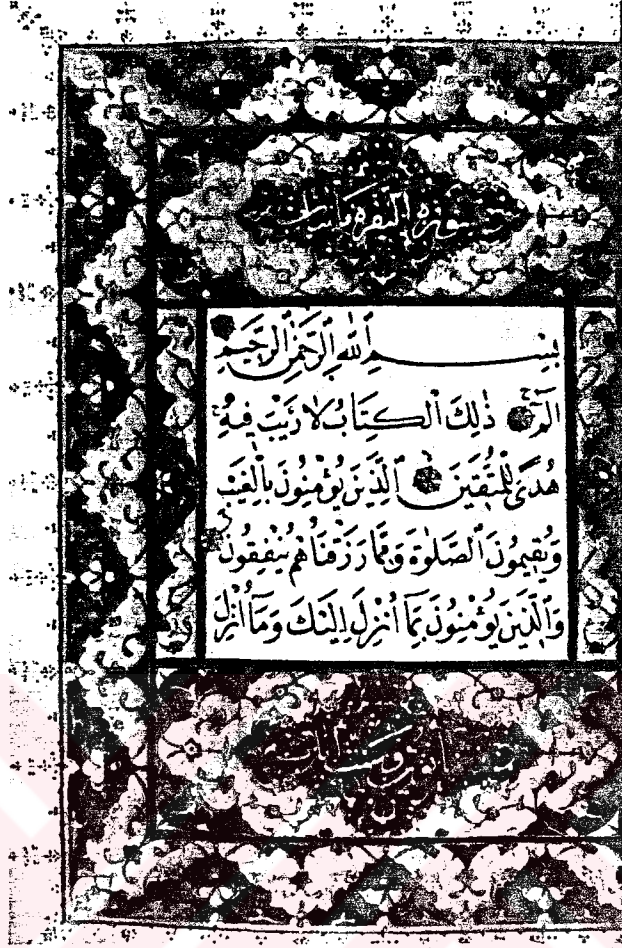 سورة البقرة مائتان
بِسْمِ ٱللَّهِ ٱلرَّحْمٰنِ ٱلرَّحِيمِ
الٓمٓ ذٰلِكَ ٱلْكِتَابُ لَا رَيْبَ فِيهِ
هُدًى لِلْمُتَّقِينَ ٱلَّذِينَ يُؤْمِنُونَ بِٱلْغَيْبِ
وَيُقِيمُونَ ٱلصَّلٰوةَ وَمِمَّا رَزَقْنَاهُمْ يُنْفِقُونَ
وَٱلَّذِينَ يُؤْمِنُونَ بِمَٓا اُنْزِلَ اِلَيْكَ وَمَٓا اُنْزِلَ
آيات